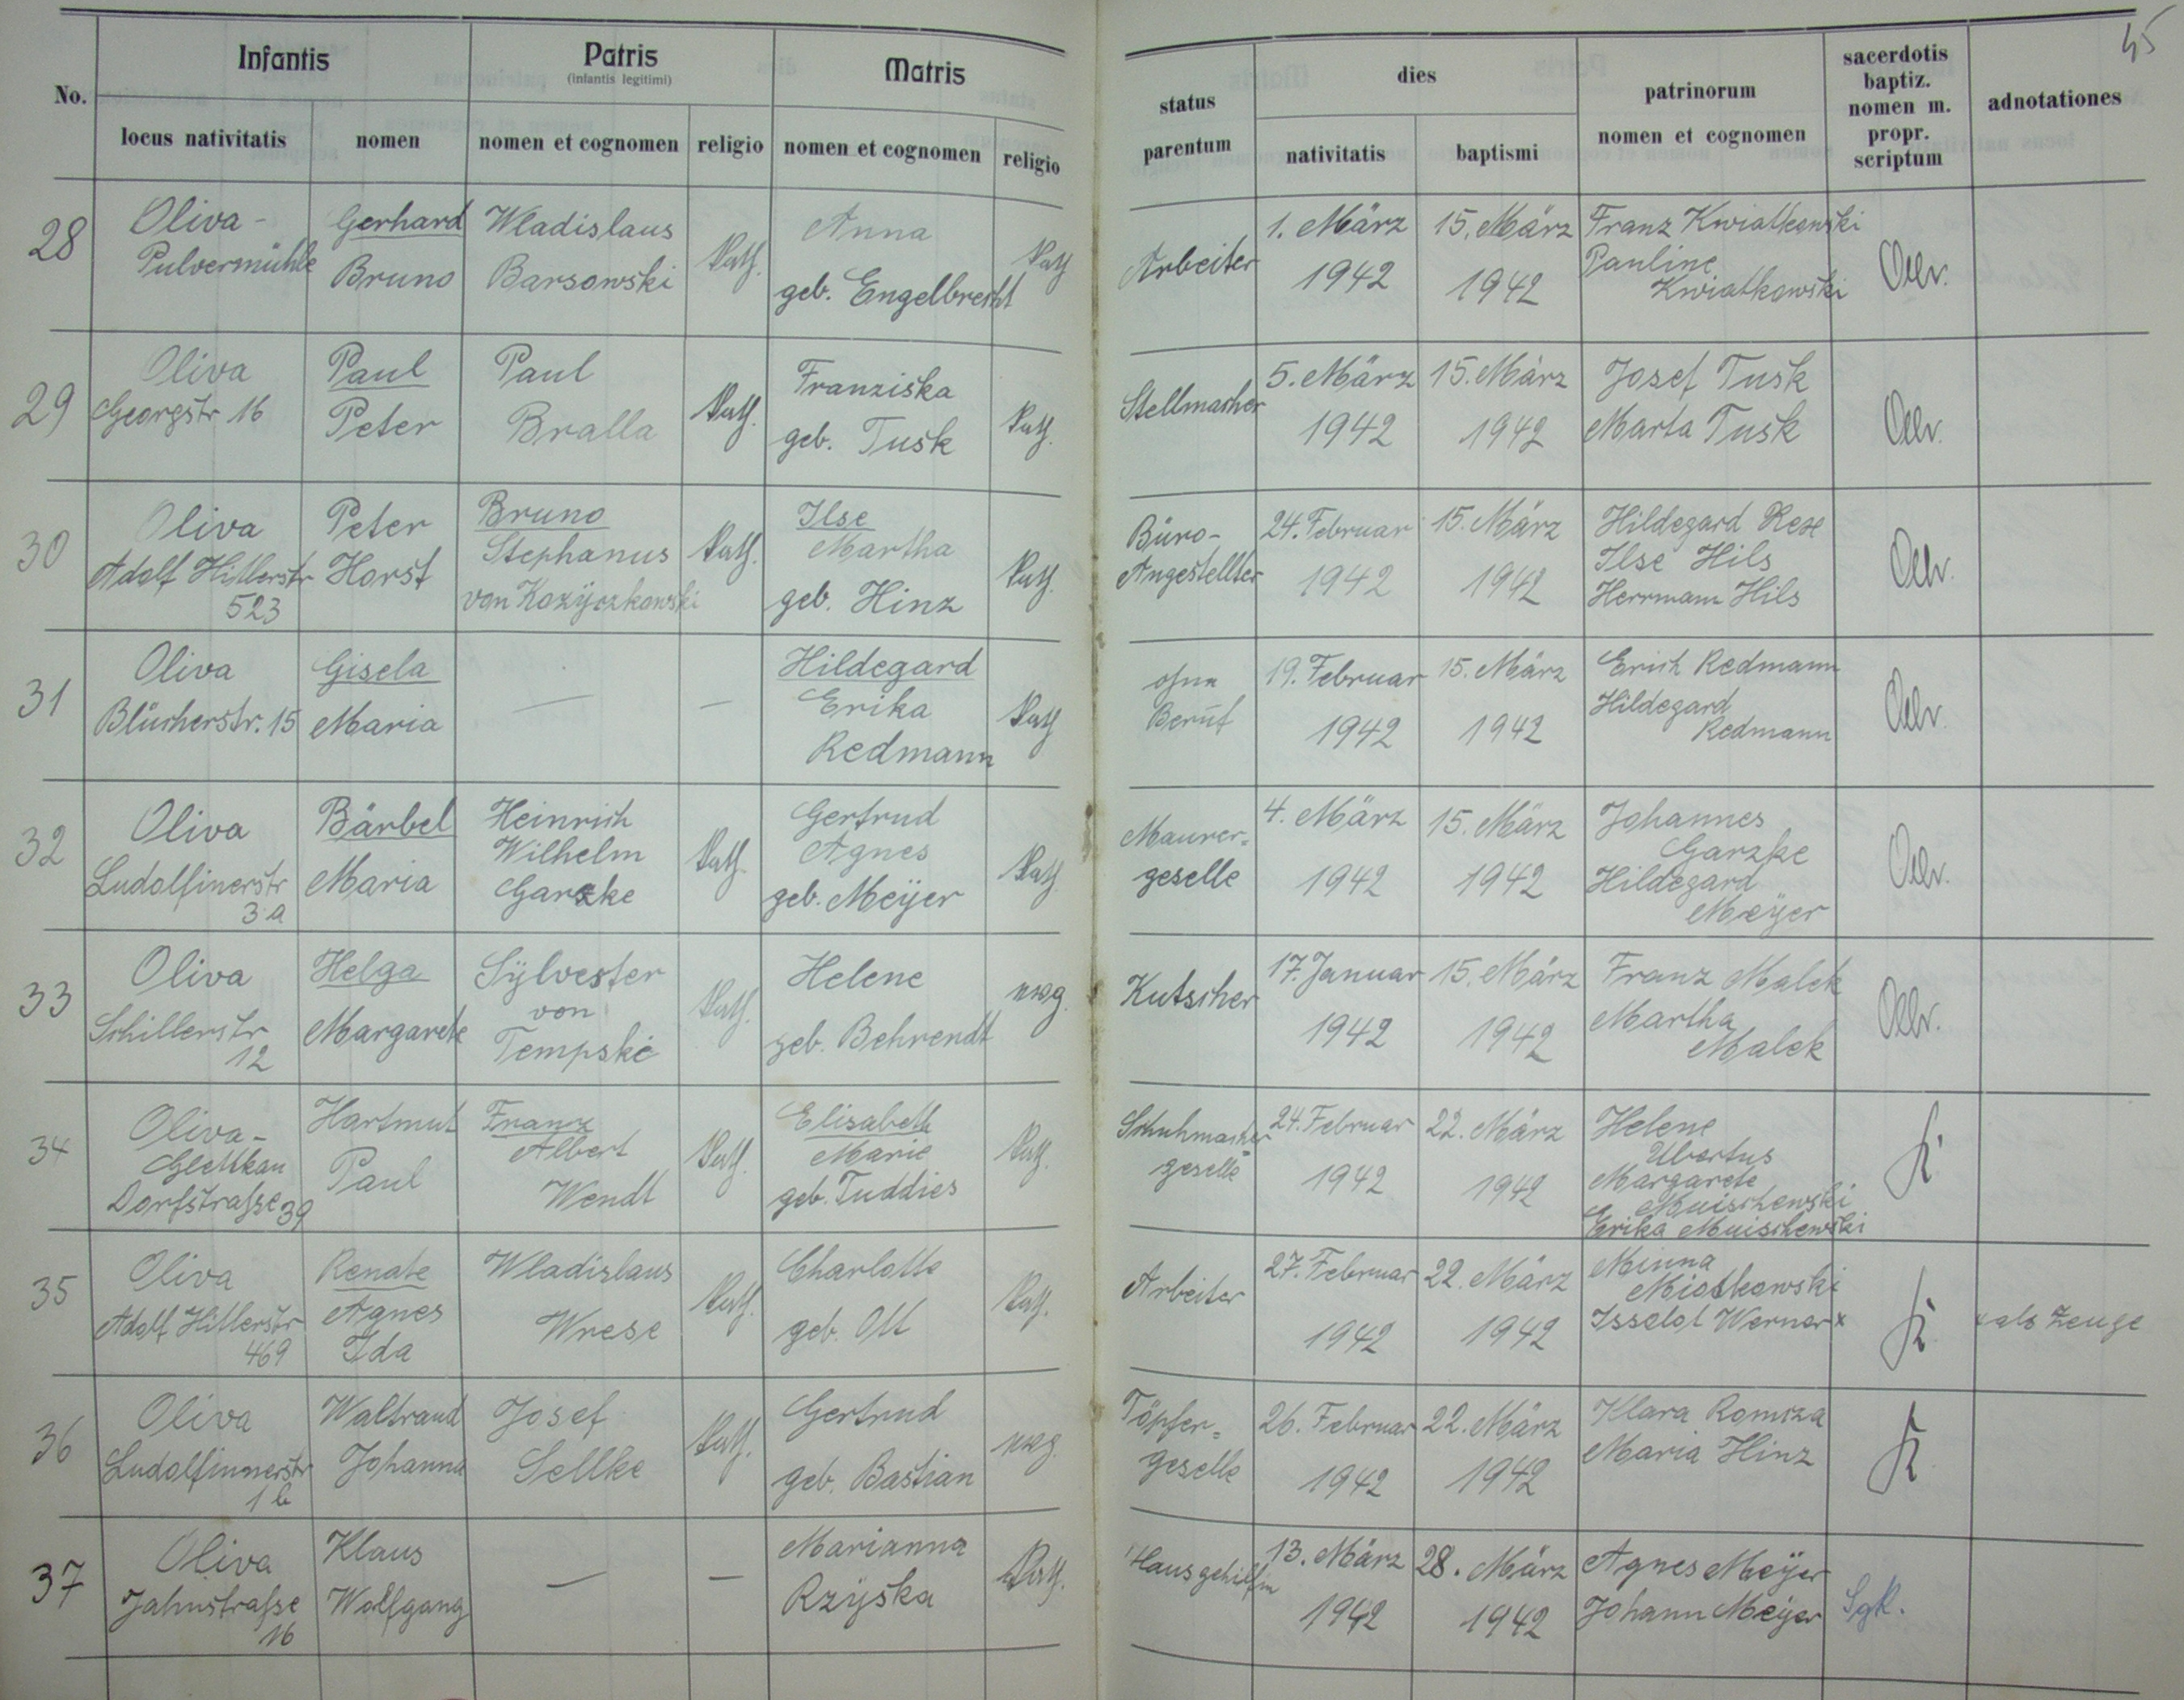 45
No.
Infantis
Patris
(infantis legitimi)
Matris
status parentum
dies
patrinorum
nomen et cognomen
sacerdotis
baptiz.
nomen m.
propr.
scriptum
adnotationes
locus nativitatis
nomen
nomen et cognomen
religio
nomen et cognomen
religio
nativitatis
baptismi
28
Oliva -
Pulvermühle
Gerhard
Bruno
Wladislaus
Barsowski
kath.
Anna
geb. Engelbrecht
kath
Arbeiter
1. März
1942
15. März
1942
Franz Kwiatkowski
Pauline
Kwiatkowski
29
Oliva
Georgstr 16
Paul
Peter
Paul
Bralla
kath.
Franziska
geb. Tusk
kath.
Stellmacher
5. März
1942
15. März
1942
Josef Tusk
Marta Tusk
30
Oliva
Adolf Hitlerstr
523
Peter
Horst
Bruno
Stephanus
von Kozyczkowski
kath.
Ilse
Martha
geb. Hinz
kath.
Büro-
Angestellter
24. Februar
1942
15. März
1942
Hildegard Rese
Ilse Hils
Herrmann Hils
31
Oliva
Blücherstr. 15
Gisela
Maria
—
—
Hildegard
Erika
Redmann
kath
ohne
Beruf
19. Februar
1942
15. März
1942
Erich Redmann
Hildegard
Redmann
32
Oliva
Ludolfinerstr
3 a
Bärbel
Maria
Heinrich
Wilhelm
Garzke
kath.
Gertrud
Agnes
geb. Meÿer
kath
Maurer=
geselle
4. März
1942
15. März
1942
Johannes
Garzke
Hildegard
Meÿer
33
Oliva
Schillerstr
12
Helga
Margarete
Sÿlvester
von
Tempski
kath.
Helene
geb. Behrendt
evg.
Kutscher
17. Januar
1942
15. März
1942
Franz Malek
Martha
Malek
34
Oliva-
Glettkau
Dorfstraße 39
Hartmut
Paul
Franz
Albert
Wendt
kath.
Elisabeth
Marie
geb. Tuddies
kath.
Schuhmacher=
geselle
24. Februar
1942
22. März
1942
Helene
Ubertus
Margarete
Muischewski
Erika Muischewski
K
35
Oliva
Adolf Hitlerstr
469
Renate
Agnes
Ida
Wladislaus
Wrese
kath.
Charlotte
geb. Ott
kath.
Arbeiter
27. Februar
1942
22. März
1942
Minna
Miotkowski
Werner x
K
x als Zeuge
36
Oliva
Ludolfinnerstr
1 b
Waltraud
Johanna
Josef
Sellke
kath.
Gertrud
geb. Bastian
evg.
Töpfer=
geselle
26. Februar
1942
22. März
1942
Klara Romiza
Maria Hinz
K
37
Oliva
Jahnstraße
16
Klaus
Wolfgang
—
—
Marianna
Rzÿska
kath.
Hausgehilfin
13. März
1942
28. März
1942
Agnes Meÿer
Johann Meÿer